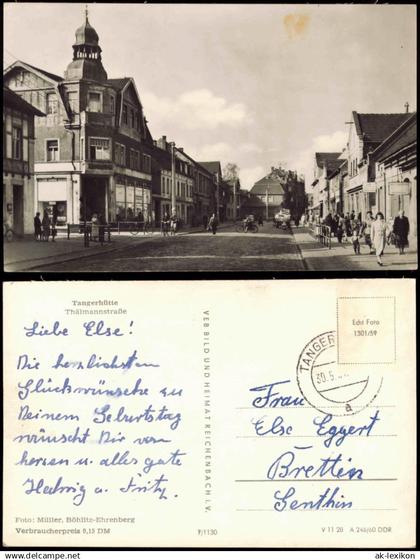 Tangerhütte
Thälmannstraße
Liebe Else!
Die herzlichsten
Glückwünsche zu
Deinem Geburtstag
wünscht Dir von
herzen u. alles gute
Hedwig u. Fritz.
Foto: Müller, Böhlitz-Ehrenberg
Verbraucherpreis 0,15 DM
VEB BILD UND HEIMAT REICHENBACH I. V.
9/1130
Echt Foto
1301/59
TANGER
30.5.
a
Frau
Else Eggert
Brettin
Genthin
V 11 28 A 246/60 DDR
© ak-lexikon.com
ak-lexikon.de